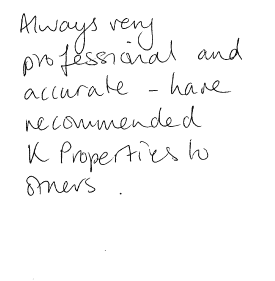 Always very
professional and
accurate - have
recommended
K Properties to
others.